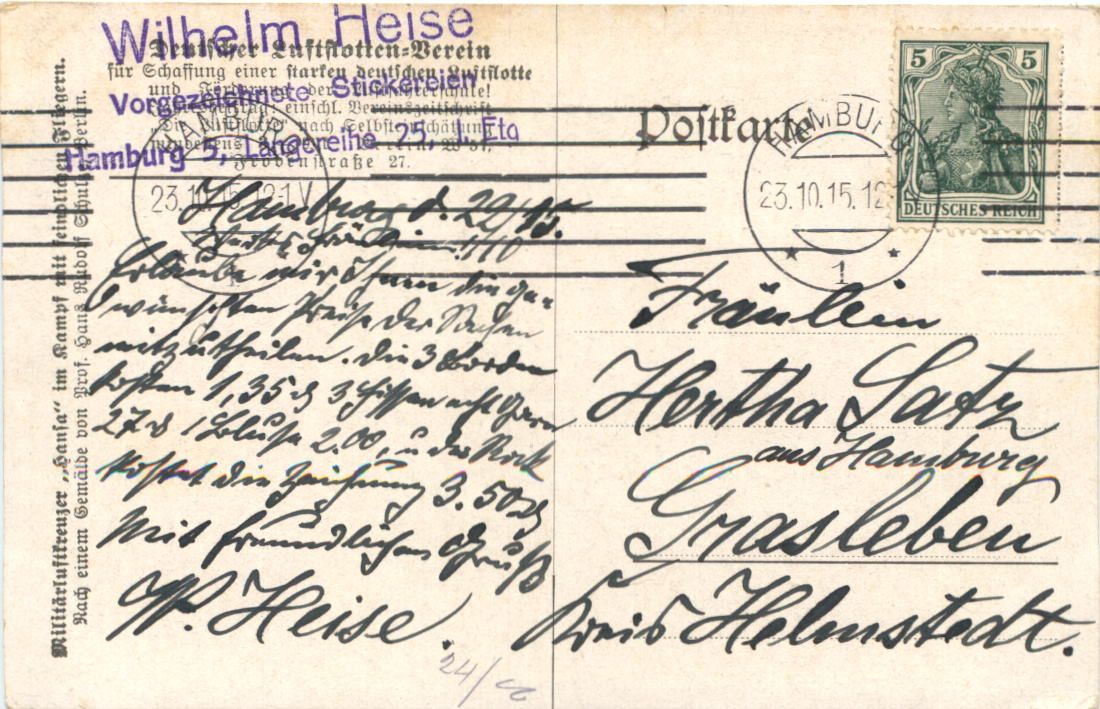 Wilhelm Heise
Vorgezeichnete Stickereien
Hamburg 5, Langereihe 25, Etg
Deutscher Luftflotten-Verein
für Schaffung einer starken deutschen Luftflotte
und Förderung der
einschl. Vereinszeitschrift
"Die Luftflotte" nach Selbsteinschätzung
mindestens
Frobenstraße 27.
Postkarte
HAMBURG
23.10.15.12-1V
1
HAMBURG
23.10.15.12
1
5 5
DEUTSCHES REICH
Militärluftkreuzer „Hansa“ im Kampf mit feindlichen Fliegern.
Nach einem Gemälde von Prof. Hans Rudolf Schulze, Berlin.
Hamburg d. 22/10 15.
Wertes Fräulein!
Erlaube mir Ihnen die ge-
wünschten Preise der Sachen
mitzutheilen. Die 3 Borden
kosten 1,35 3 Kissen acht
27 1 Bluse 2.00, u der Rock
kostet die Zeichnung 3.50
Mit freundlichem Gruß
W. Heise.
Fräulein
Hertha Satz
aus Hamburg
Grasleben
Kreis Helmstedt.
24/